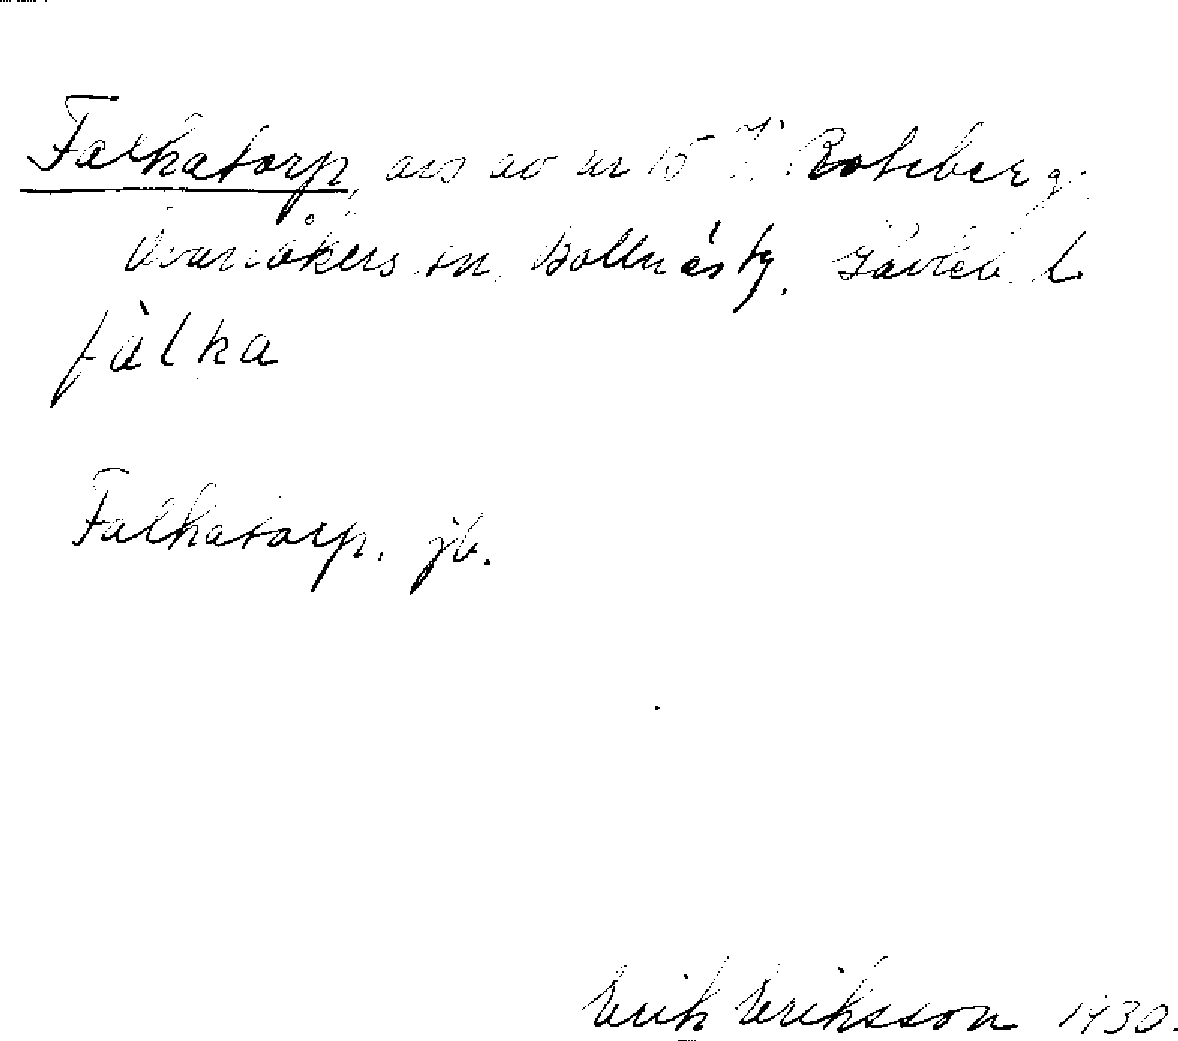 Falkatorp, avs av nr 15 V. Roteberg.
Ovanåkers sn, Bollnäs tg. Gävleb. l
fàlka
Falkatorp. jb.
Erik Eriksson 1930.